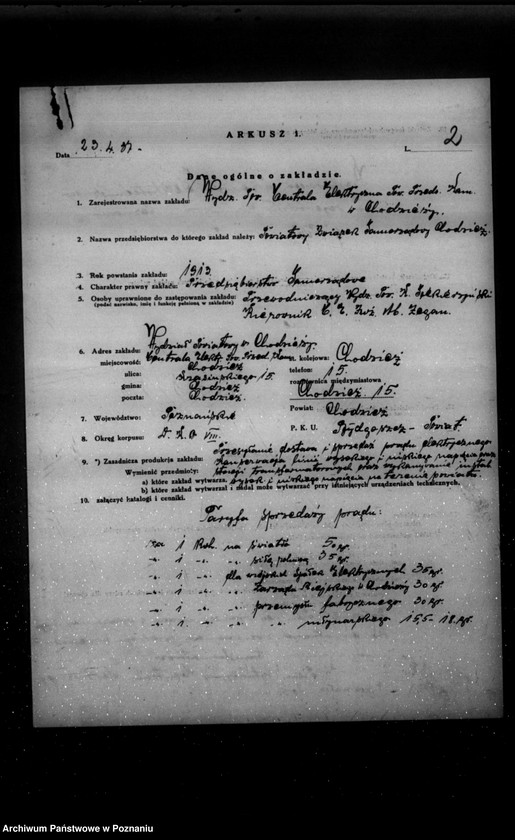 ARKUSZ 1.
2
Data 23.4.37- L.
Dane ogólne o zakładzie.
1. Zarejestrowana nazwa zakładu: Wydz. Centrala Elektryczna
w Chodzieży.
2. Nazwa przedsiębiorstwa do którego zakład należy: Powiatowy Związek Samorządowy Chodzież.
3. Rok powstania zakładu: 1913.
4. Charakter prawny zakładu: Przedsiębiorstwo Samorządowe
5. Osoby uprawnione do zastępowania zakładu: Przewodniczący Wydz. Pow.
(podać nazwisko, imię i funkcję pełnioną w zakładzie) Kierownik C. E.
6. Adres zakładu: Wydział Powiatowy w Chodzieży.
miejscowość: Centrala Elektr. kolejowa: Chodzież
Chodzież
ulica: 15. telefon: 15.
rozmównica międzymiastowa
gmina: Chodzież Chodzież 15.
poczta: Chodzież. Powiat: Chodzież
7. Województwo: Poznańskie P. K. U. Bydgoszcz-
8. Okręg korpusu: D. K. O VIII.
9. *) Zasadnicza produkcja zakładu: dostawa i sprzedaż prądu elektrycznego.
Konserwacja linii wysokiego i niskiego napięcia oraz
Wymienić przedmioty: stacji transformatorowych oraz wykonywanie
a) które zakład wytwarza, i niskiego napięcia na terenie powiatu.
b) które zakład wytwarzał i nadal może wytwarzać przy istniejących urządzeniach technicznych.
10. załączyć katalogi i cenniki.
Taryfa sprzedaży prądu:
za 1 na światło 50 gr.
" 1 " " siłę 35 gr.
" 1 " " dla Spółek Elektrycznych 35 gr.
" 1 " " Zarządu Miejskiego w Chodzieży 30 gr.
" 1 " " przemysłu fabrycznego 30 gr.
" 1 " " " młynarskiego 15,5- 18 gr.
Archiwum Państwowe w Poznaniu